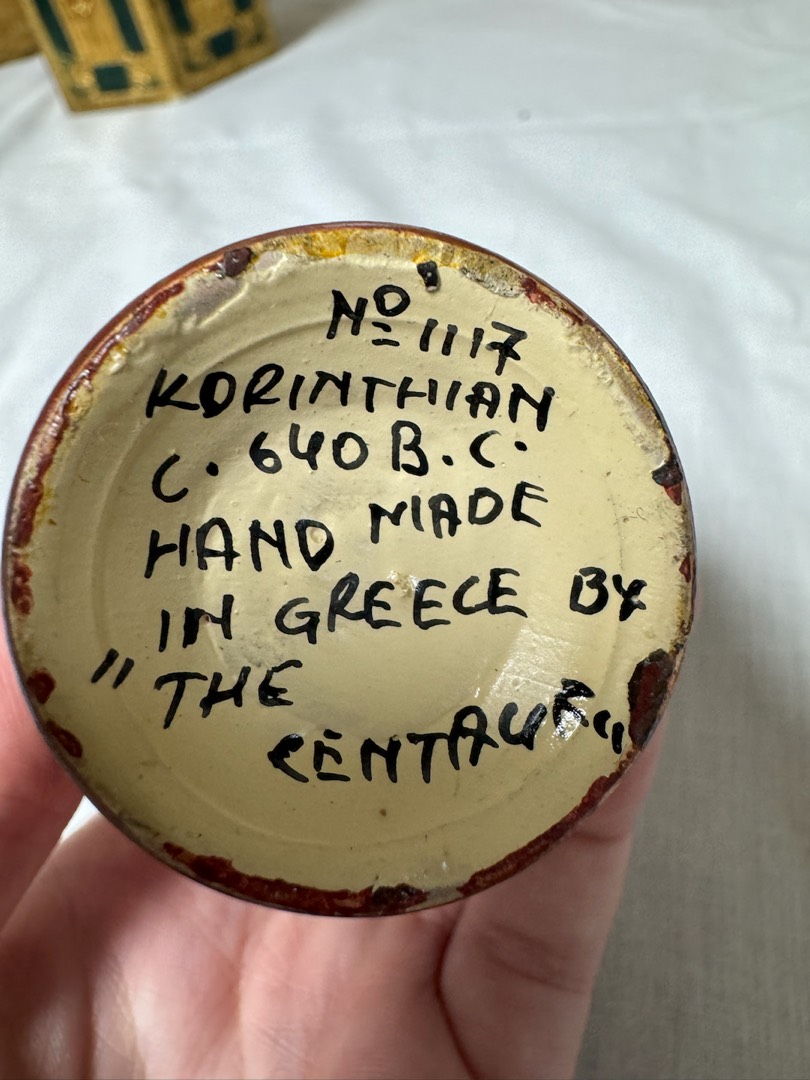 Nº 1117
KORINTHIAN
C. 640 B.C.
HAND MADE
IN GREECE BY
"THE
CENTAUR"